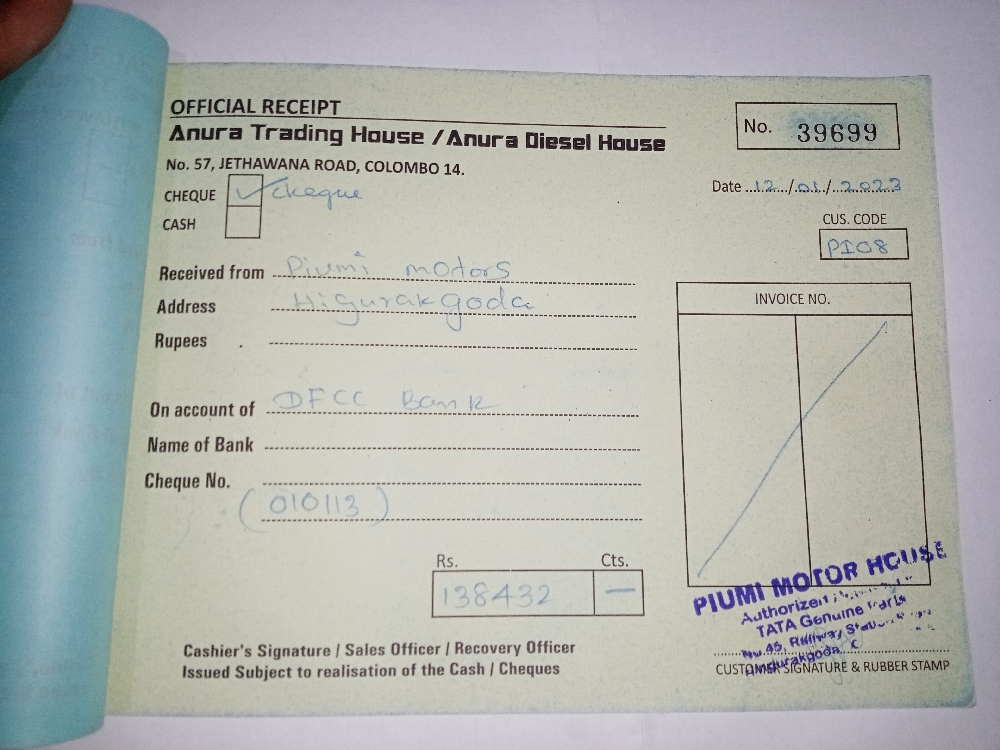 OFFICIAL RECEIPT
Anura Trading House / Anura Diesel House
No. 57, JETHAWANA ROAD, COLOMBO 14.
No. 39699
CHEQUE ✓ cheque
CASH
Date 12 / 01 / 2023
CUS. CODE
PI08
Received from Piumi motors
Address Higurakgoda
Rupees
INVOICE NO.
On account of DFCC Bank
Name of Bank
Cheque No.
(010113)
Rs. Cts.
138432 —
PIUMI MOTOR HOUSE
Authorized
TATA Genuine Parts
No.45, Railway
Cashier's Signature / Sales Officer / Recovery Officer
Issued Subject to realisation of the Cash / Cheques
CUSTOMER SIGNATURE & RUBBER STAMP